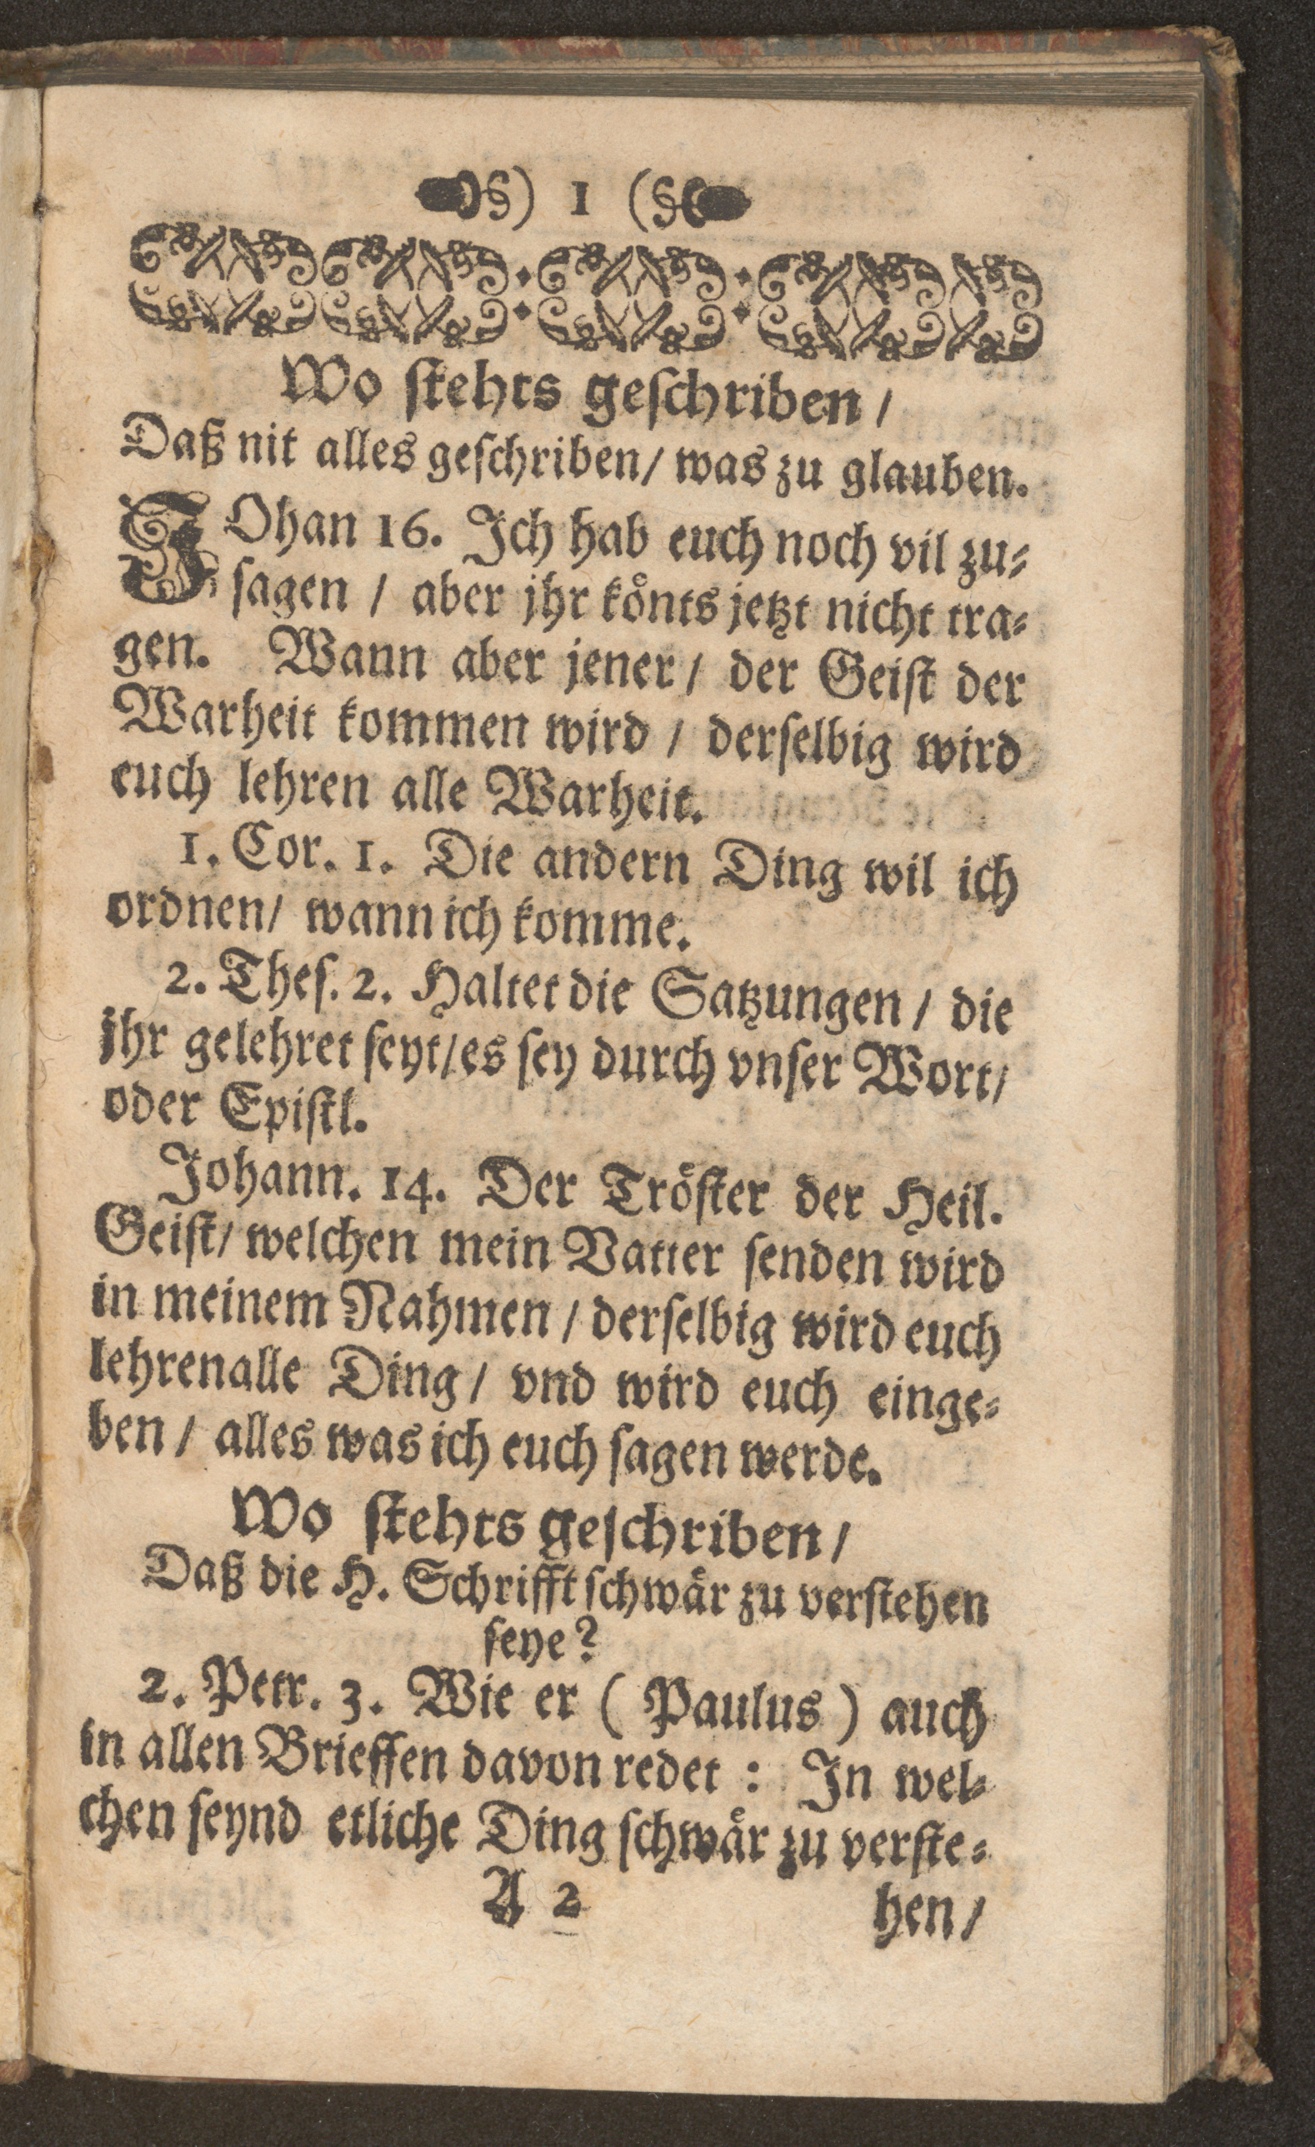 §) 1 (§
Wo stehts geschriben /
Daß nit alles geschriben / was zu glauben.
JOhan 16. Jch hab euch noch vil zu⸗
sagen / aber jhr koͤnts jetzt nicht tra⸗
gen. Wann aber jener / der Geist der
Warheit kommen wird / derselbig wird
euch lehren alle Warheit.
1. Cor. 1. Die andern Ding wil ich
ordnen / wann ich komme.
2. Thes. 2. Haltet die Satzungen / die
jhr gelehret seyt / es sey durch vnser Wort /
oder Epistl.
Johann. 14. Der Troͤster der Heil.
Geist / welchen mein Vatter senden wird
in meinem Nahmen / derselbig wird euch
lehrenalle Ding / vnd wird euch einge⸗
ben / alles was ich euch sagen werde.
Wo stehts geschriben /
Daß die H. Schrifft schwaͤr zu verstehen
seye?
2. Petr. 3. Wie er ( Paulus ) auch
in allen Brieffen davon redet : Jn wel⸗
chen seynd etliche Ding schwaͤr zu verste⸗
A 2 hen /